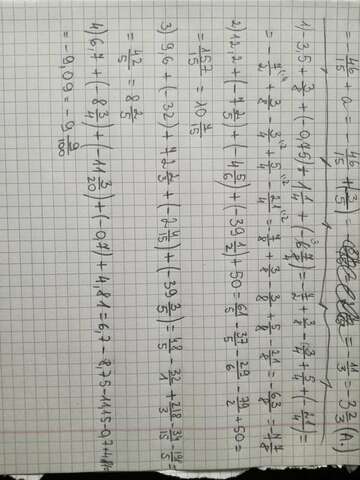 = -46/15 + a = -46/15 + (-3/5) = = -11/3 = 3 2/3 (A.)
1) -3,5 + 3/8 + (-0,75) + 1 1/4 + = -7/2 + 3/8 - 3/4 + 5/4 + (-21/8) =
= -7/2 + 3/8 - 3/4 + 5/4 - 21/8 =
2) 12,2 + (-7 2/5) + (-4 5/6) + (-39 1/2) + 50 = 61/5 - 37/5 - 29/6 - 79/2 + 50 =
= 157/15 = 10 7/15
3) 9,6 + (-32) + 72 2/3 + (-2 4/15) + (-39 3/5) = 48/5 - 32/1 + 218/3 - 34/15 -
= 42/5 = 8 2/5
4) 6,7 + (-8 3/4) + (-11 3/20) + (-0,7) + 4,81 = 6,7 - 8,75 - 11,15 - 0,7 + 4,81 =
= -9,09 = -9 9/100